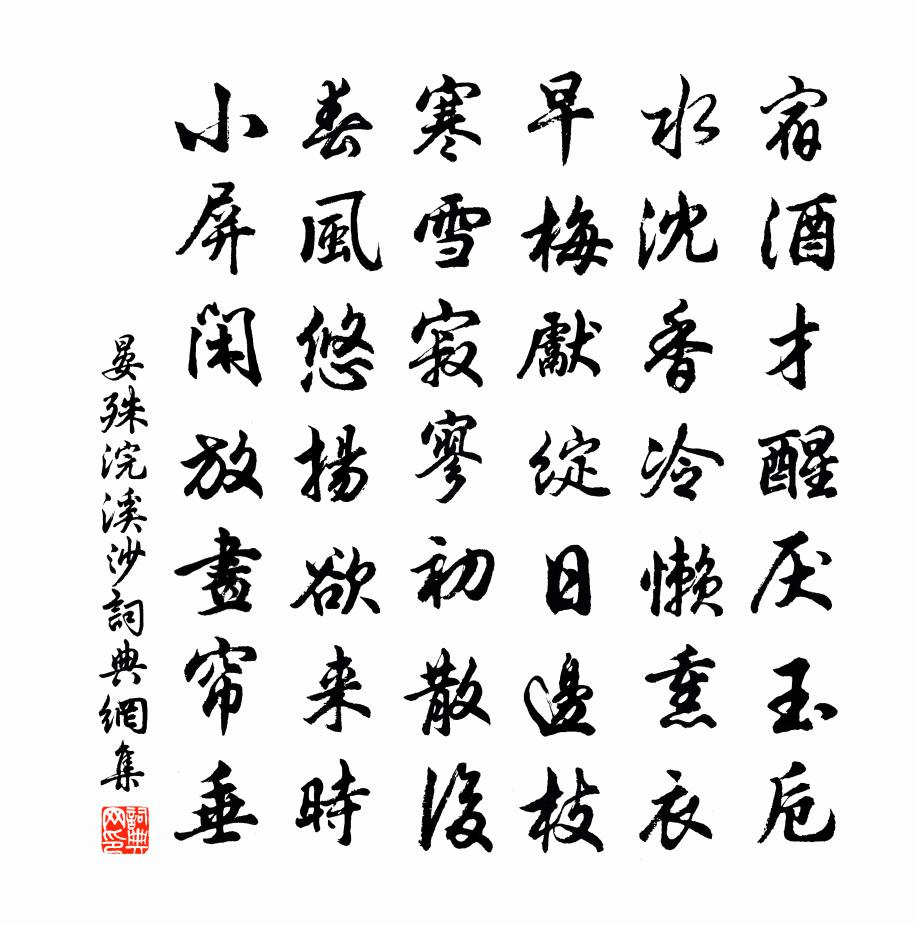 宿酒才醒厌玉卮
水沈香冷懒熏衣
早梅獻綻日邊枝
寒雪寂寥初散後
春風悠揚欲来時
小屏閑放晝帘垂
晏殊浣溪沙詞典網集
詞典网印